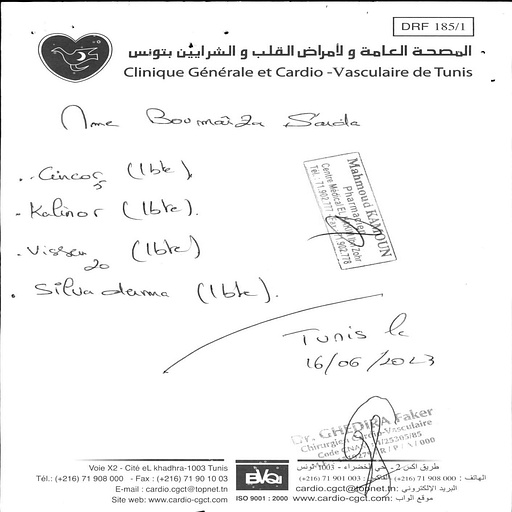 DRF 185/1
المصحة العامة و لأمراض القلب و الشرايين بتونس
Clinique Générale et Cardio -Vasculaire de Tunis
Mme Boumaiza Saida
(1bte)
- Kalinor (1bte).
(1bte)
20
. Silvaderma (1bte).
Mahmoud KAMOUN
Pharmacien
Tunis le
16/06/2023
Dr. GHEDIRA Faker
Chirurgien Cardio-Vasculaire
Voie X2 - Cité eL khadhra-1003 Tunis
Tél.: (+216) 71 908 000 - Fax : (+216) 71 90 10 03
E-mail : cardio.cgct@topnet.tn
Site web: www.cardio-cgct.com
BVQI
ISO 9001 : 2000
طريق اكس 2 - حي الخضراء - 1003 تونس
الهاتف : 000 908 71 (216+)
البريد الالكتروني: cardio.cgct@topnet.tn
موقع الواب: www.cardio-cgct.com